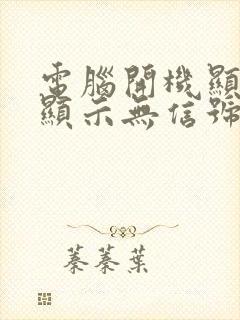 電腦開機顯
顯示無信號
蓁蓁葉